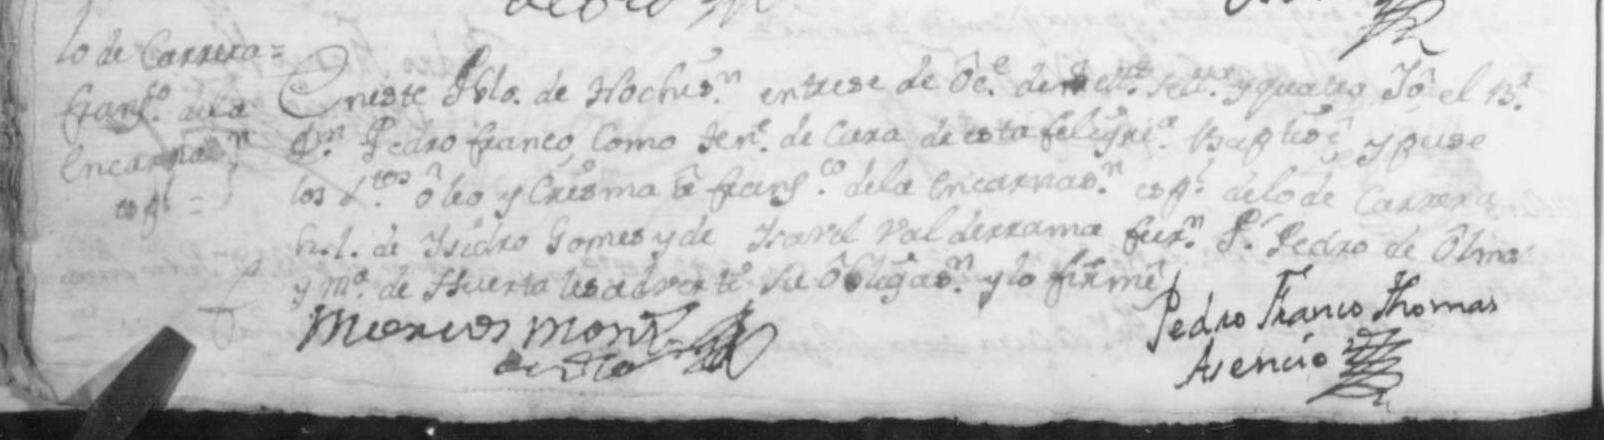 lo de Carrera=
franſ.co dela
Encarnas.n
esp.l =
Eneste Pblo. de Nochis.n entrese de Oc.e de y quatro Yô el B.r
D.n Pedro franco Como Ten.e de Cura de esta feligri.a Baptisê, y puse
los S.tos ôleo y Crisma â franſ.co dela Encarnas.n esp.l delo de Carrera
h.l. de Ysidro Gomes y de Ysavel Valderrama fuer.n P.s Pedro de Ôlmo
y M.a de Huerta lesadverti su Obligas.n y lo firmê
Pedro Franco Thomas
Asencio